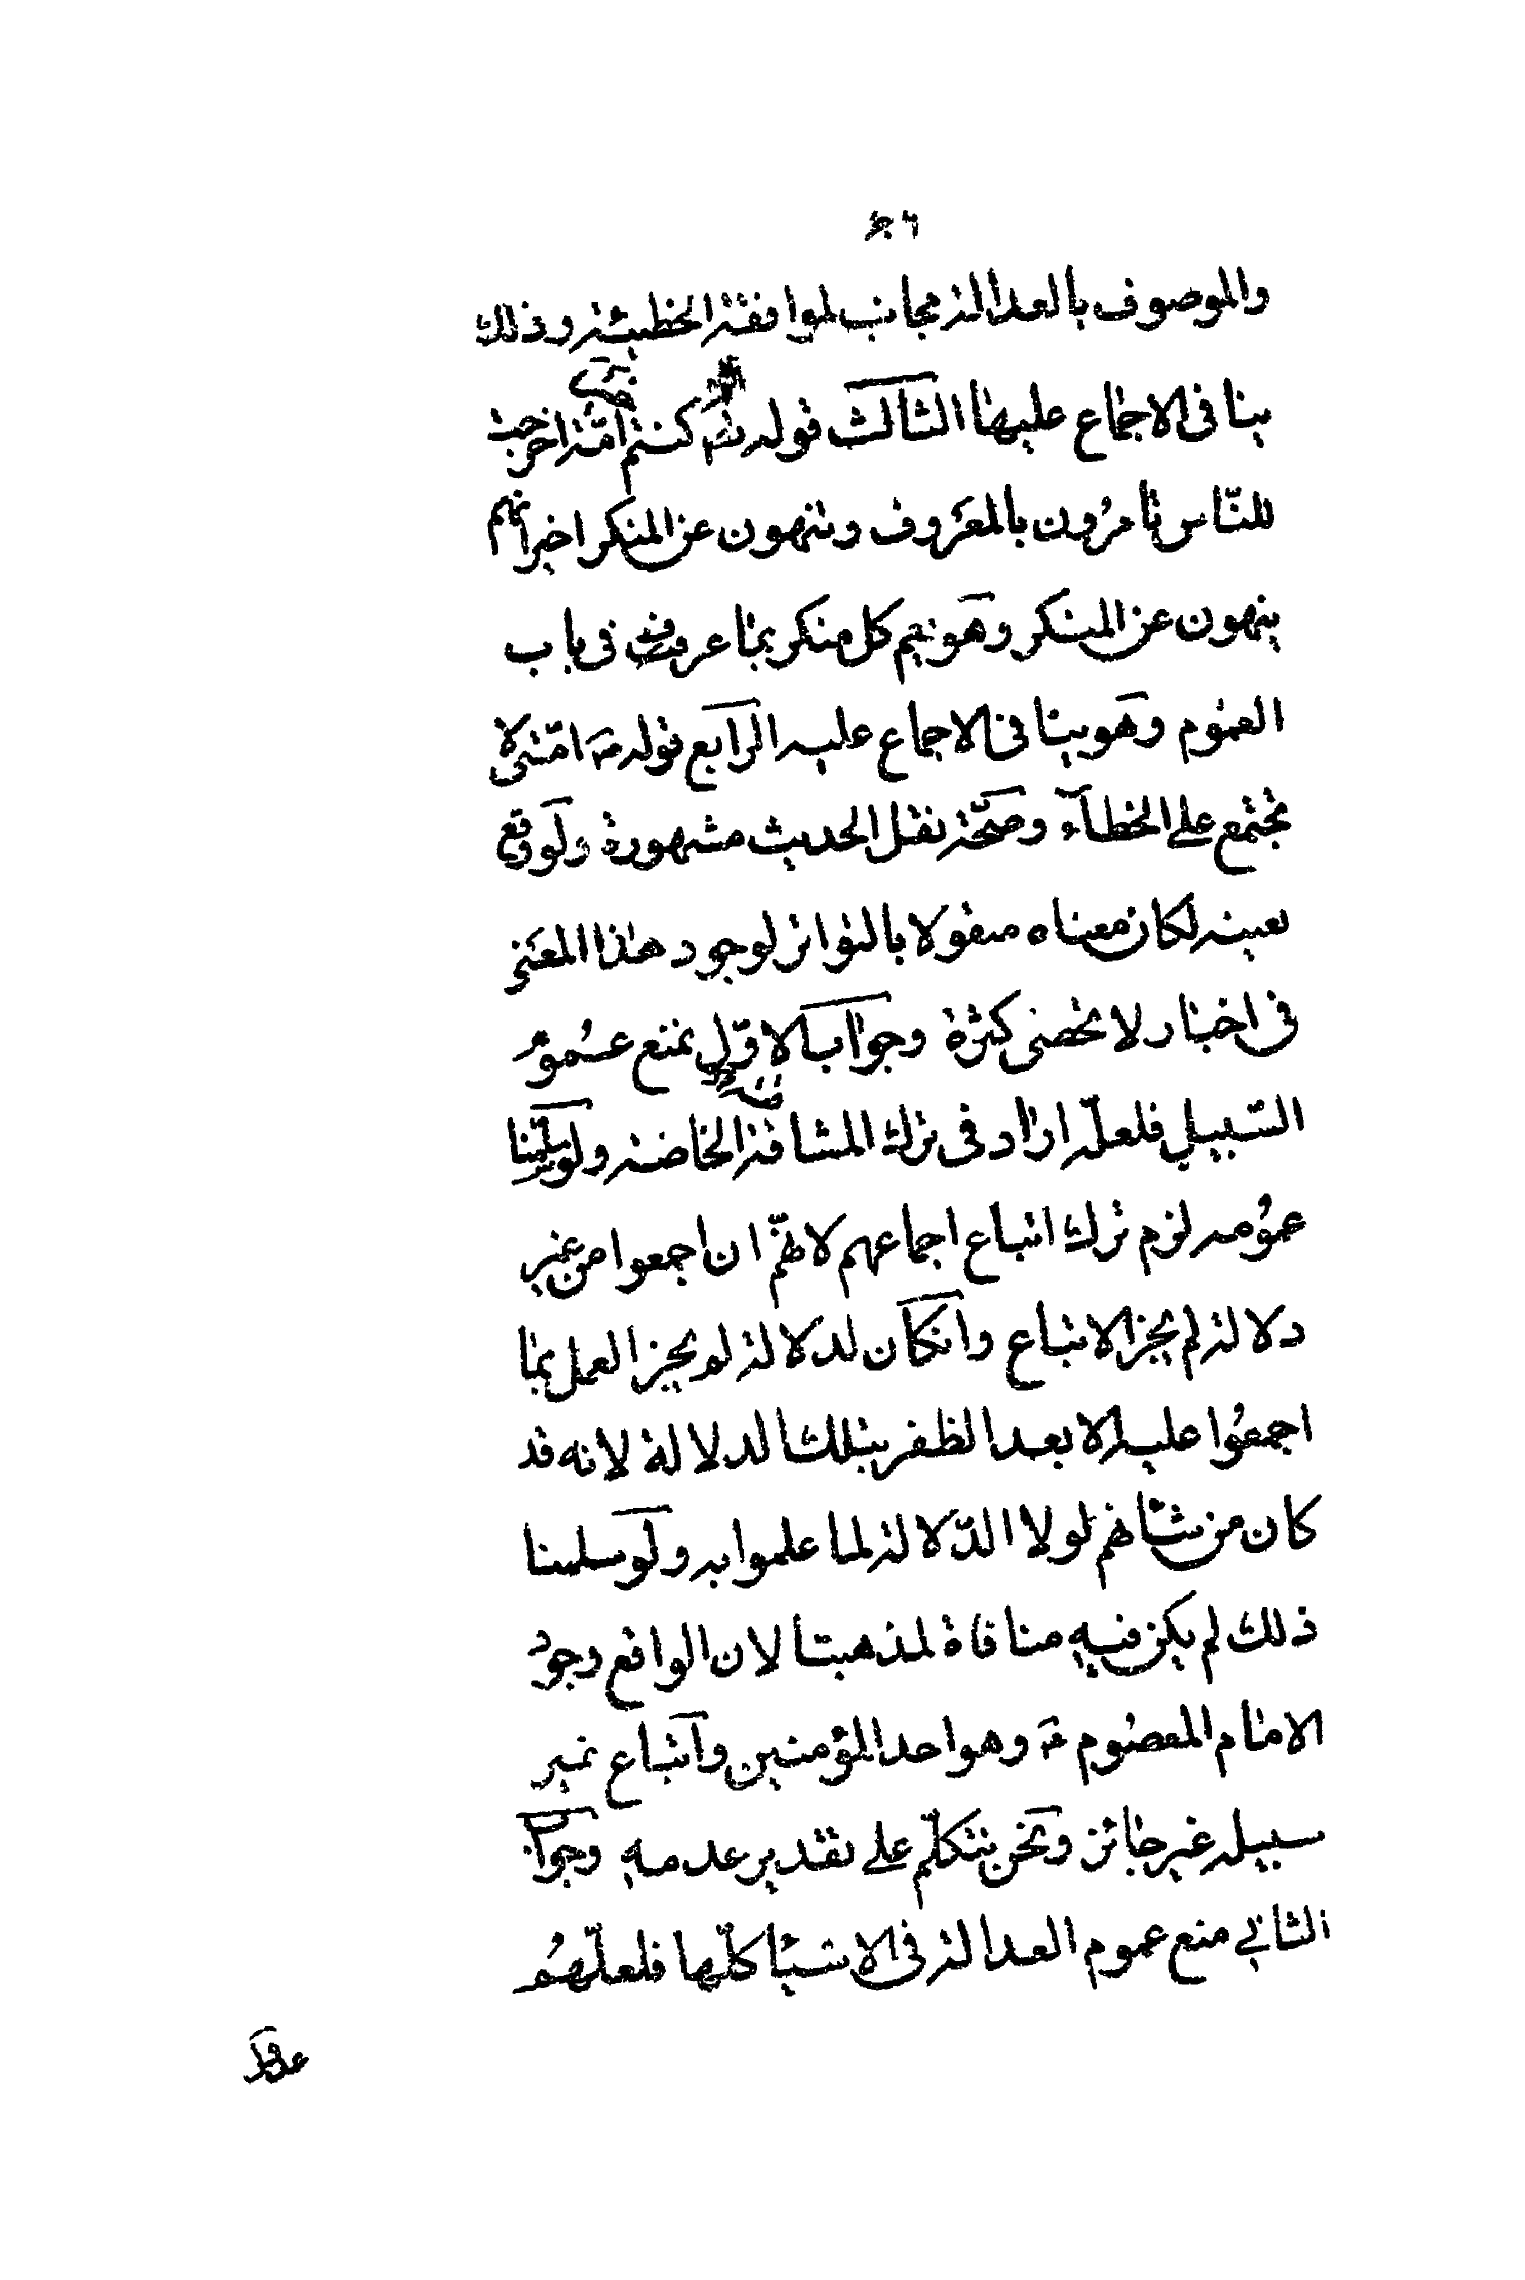 والموصوف بالعدالة مجانب لموافقة الخطيئة وذلك
ينافي الاجماع عليها الثالث قوله تعالى كنتم خير امّة اخرجت
للنّاس تامرون بالمعروف وتنهون عن المنكر اخبر انهم
ينهون عن المنكر وهو يعم كل منكر بما عرفت في باب
العموم وهو ينافي الاجماع عليه الرابع قوله ص امّتي لا
تجتمع على الخطاء وصحّة نقل الحديث مشهورة ولو وقع
بعينه لكان معناه منقولا بالتواتر لوجود هذا المعنى
في اخبار لا تحصى كثرة وجواب الاوّل نمنع عموم
السّبيل فلعلّه اراد في ترك المشاقة الخاصة ولو سلّمنا
عمومه لزم ترك اتباع اجماعهم لانهّم ان اجمعوا من غير
دلالة لم يجز الاتباع وانكان لدلالة لو يجز العمل بما
اجمعوا عليه الا بعد الظفر بتلك الدلالة لانه قد
كان من شانهم لولا الدّلالة لما علموا به ولو سلمنا
ذلك لم يكن فيه منافاة لمذهبنا لان الواقع وجود
الامام المعصوم ع وهو احد المؤمنين واتباع غير
سبيله غير جائز ونحن نتكلّم على تقدير عدمه وجواب
الثاني منع عموم العدالة في الاشيا كلّها فلعلّهم